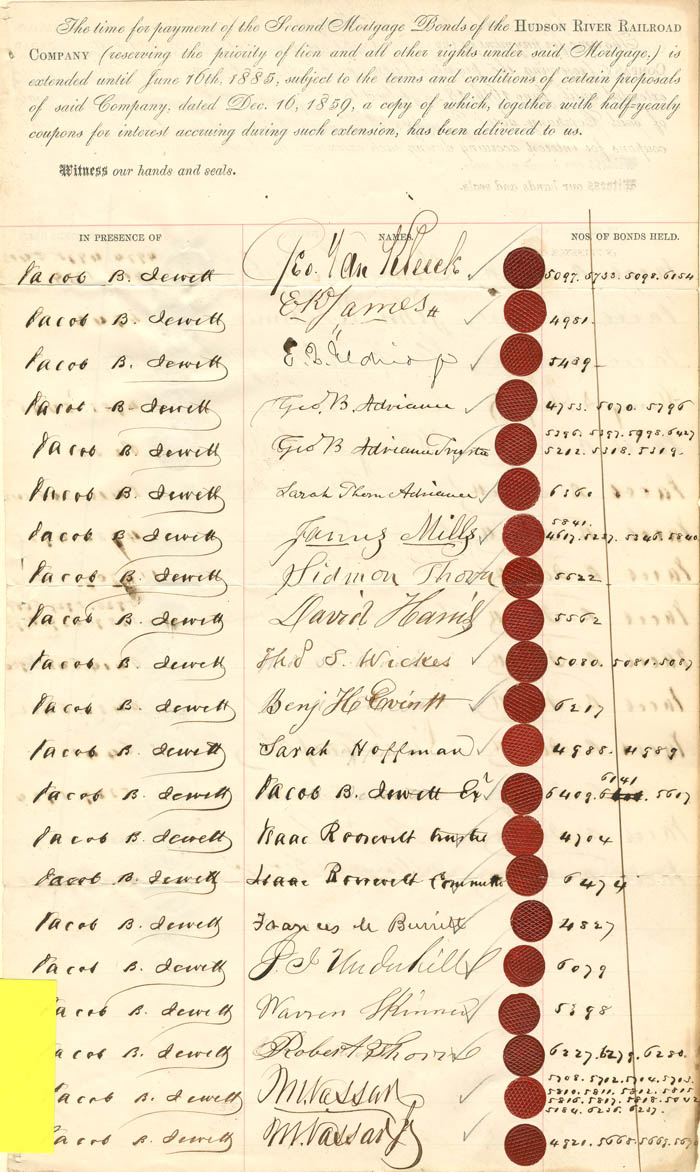 The time for payment of the Second Mortgage Bonds of the HUDSON RIVER RAILROAD
COMPANY (reserving the priority of lien and all other rights under said Mortgage,) is
extended until June 16th, 1885, subject to the terms and conditions of certain proposals
of said Company, dated Dec. 16, 1859, a copy of which, together with half-yearly
coupons for interest accruing during such extension, has been delivered to us.
Witness our hands and seals.
IN PRESENCE OF NAMES. NOS. OF BONDS HELD.
Jacob B. Jewett Geo. Van Kleeck 5097. 5733. 5098. 6154
Jacob B. Jewett E K James 4981.
Jacob B. Jewett 5489
Jacob B. Jewett Geo. B. Adriance 4753. 5070. 5796
Jacob B. Jewett Geo B Adriance Trustee 5396. 5397. 5998. 6427
5202. 5308. 5309.
Jacob B. Jewett Sarah Thorn Adriance 6360
Jacob B. Jewett James Mills 5841.
4617. 5237. 5246. 5840
Jacob B. Jewett Sidmon Thorn 5522
Jacob B. Jewett David Harris 5562
Jacob B. Jewett S. Wickes 5080. 5081. 5087
Jacob B. Jewett Benj H Everitt 6217
Jacob B. Jewett Sarah Hoffman 4988. 4989
Jacob B. Jewett Jacob B. Jewett Exr 6409. 6141. 5607
Jacob B. Jewett Isaac Roosevelt trustee 4704
Jacob B. Jewett Isaac Roosevelt Committee 6474
Jacob B. Jewett Frances de Burritt 4827
Jacob B. Jewett Underhill 6079
Jacob B. Jewett Warren Skinner 5398
Jacob B. Jewett Robert Thorn 6227. 6279. 6280.
Jacob B. Jewett M. Vassar 5708. 5702. 5704. 5703.
5810. 5811. 5812. 5815
5816. 5817. 5818. 5042
5184. 6236. 6237.
Jacob B. Jewett M. Vassar Jr 4821. 5668. 5669.